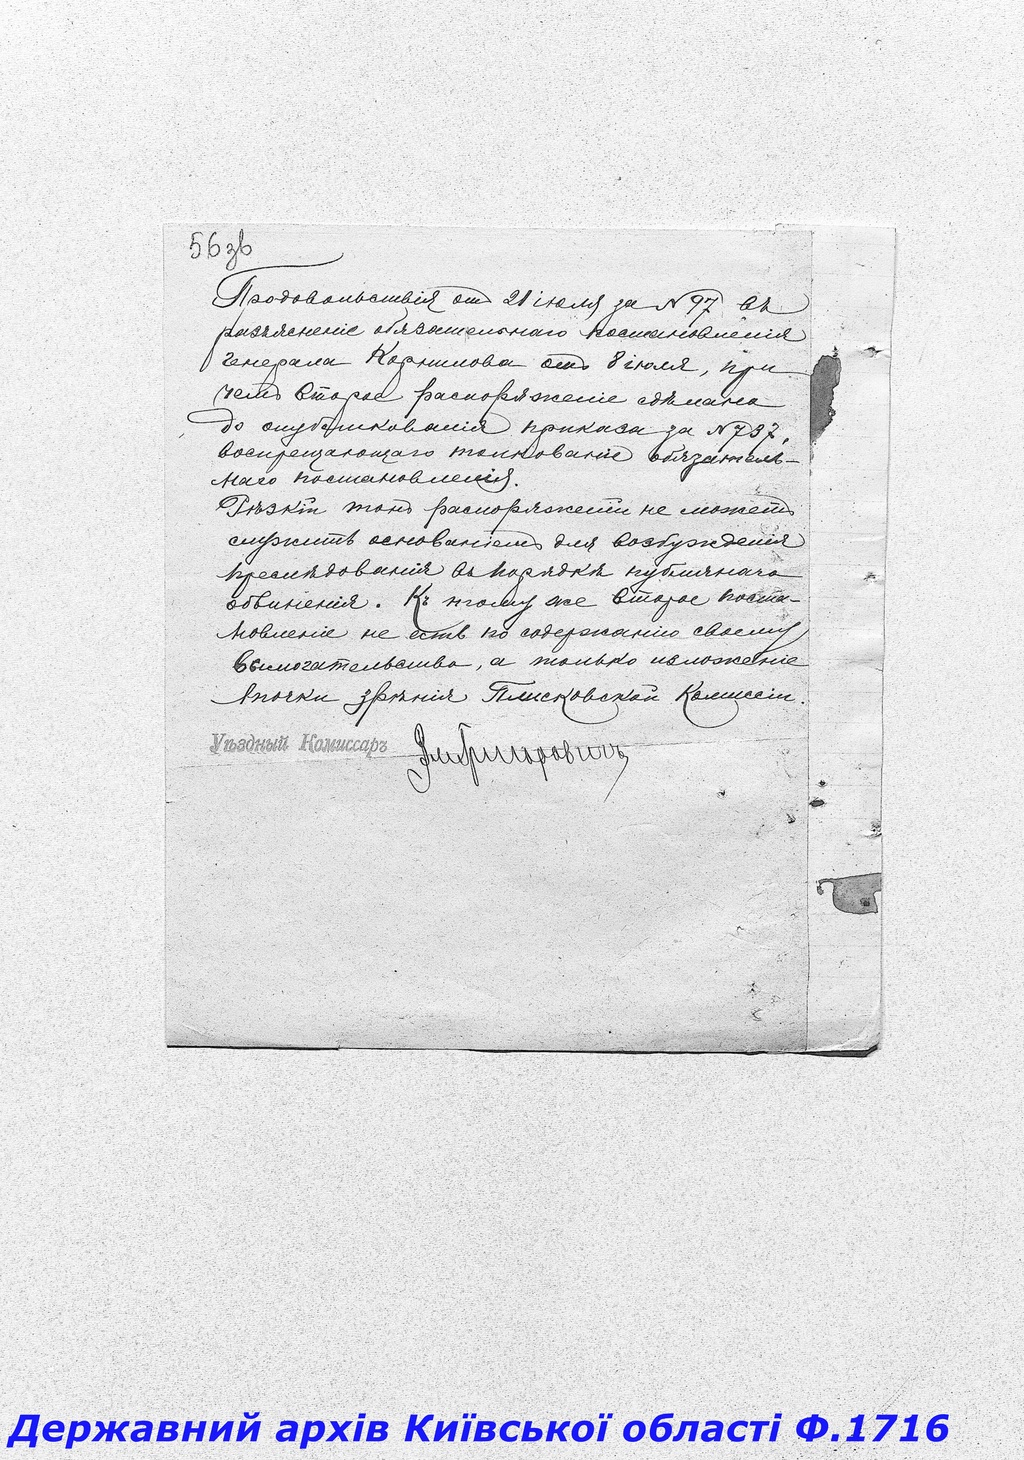 56зв
Продовольствія отъ 21 іюля за №97 въ
разъясненіе обязательнаго постановленія
Генерала Корнилова отъ 8 іюля, при
чемъ второе распоряженіе сдѣлано
до опубликованія приказа за №737,
воспрещающаго толкованіе обязатель-
наго постановленія.
Рѣзкій тонъ распоряженій не можетъ
служить основаніемъ для возбужденія
преслѣдованія въ порядкѣ публичнаго
обвиненія. Къ тому же второе поста-
новленіе не есть по содержанію своему
вымогательство, а только изложеніе
точки зрѣнія Плисковской Комиссіи.
Уѣздный Комиссаръ Григоровичъ
Державний архів Київської області Ф.1716